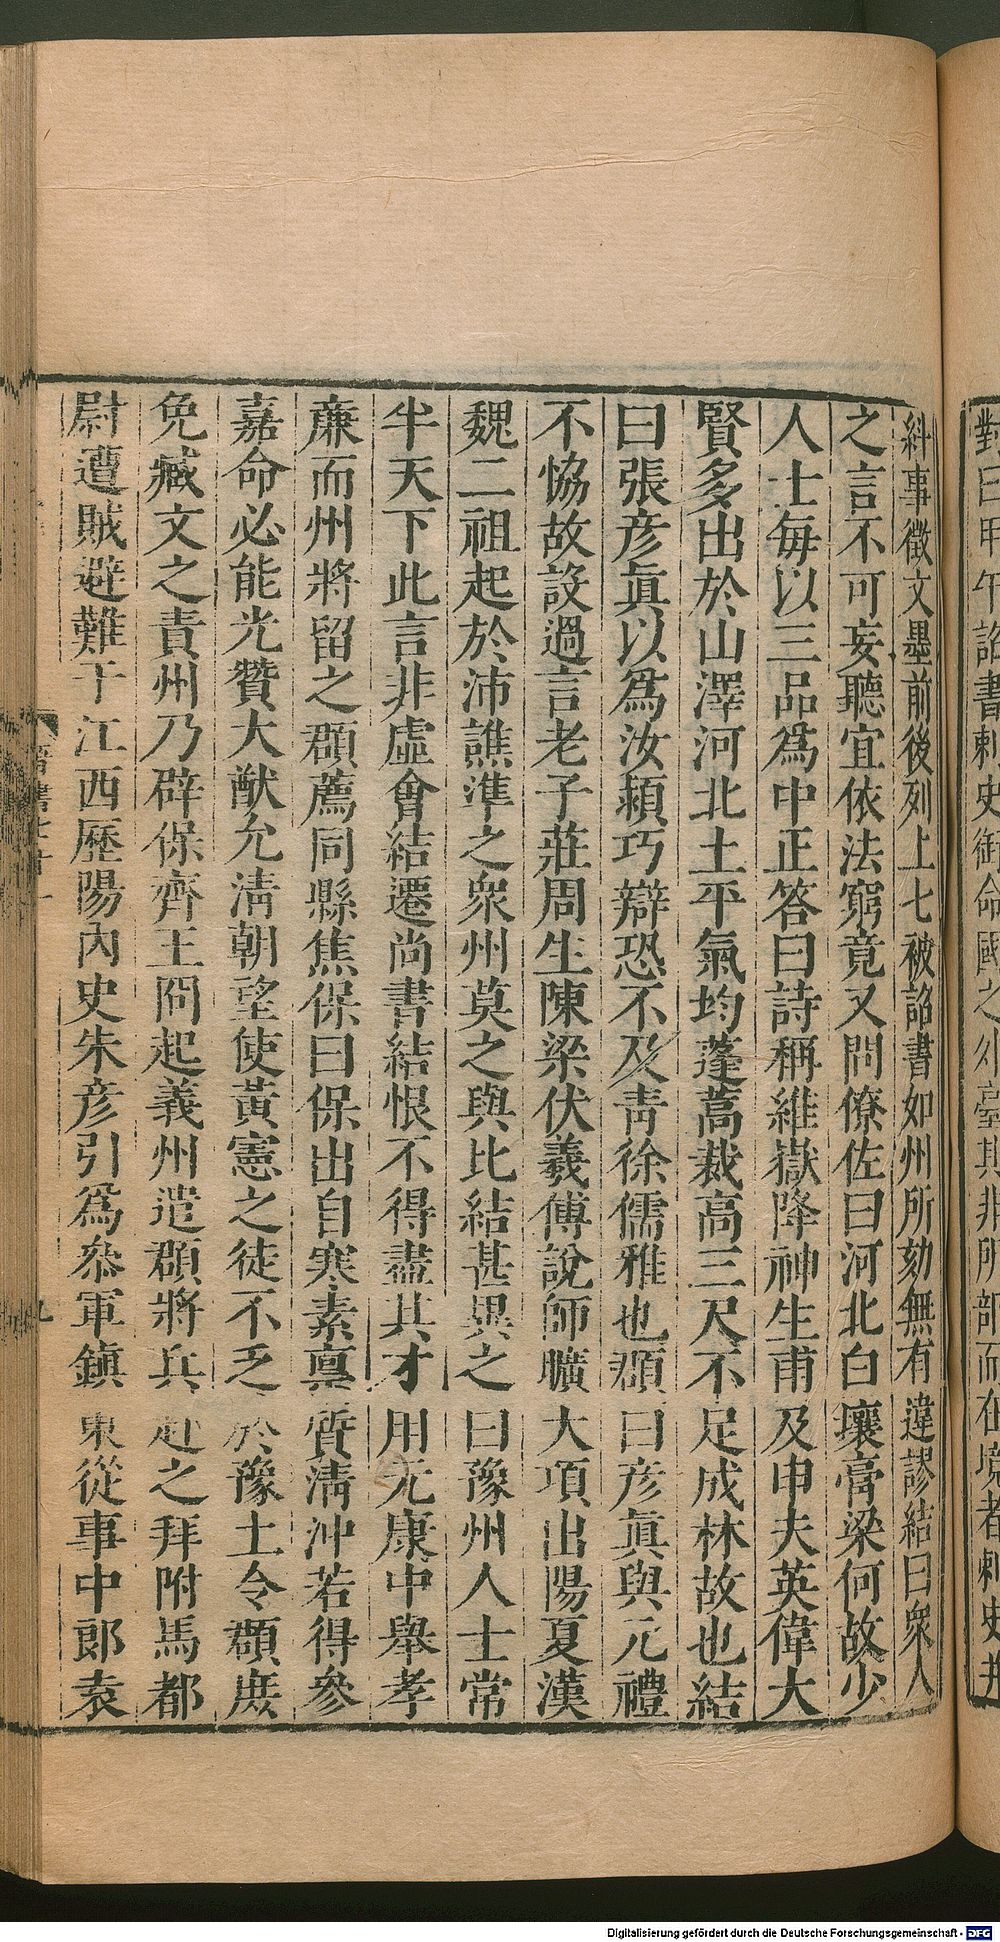 對曰甲午詔書刺史銜命國之外臺其非所部而在境者刺史并
糾事徵文墨前後列上七被詔書如州所劾無有違謬結曰衆人
之言不可妄聽宜依法窮竟又問僚佐曰河北白壤膏粱何故少
人士每以三品爲中正答曰詩稱維嶽降神生甫及申夫英偉大
賢多出於山澤河北土平氣均蓬蒿裁高三尺不足成林故也結
曰張彥眞以爲汝潁巧辯恐不及靑徐儒雅也頵曰彥眞與元禮
不恊故設過言老子莊周生陳梁伏羲傅說師曠大項出陽夏漢
魏二祖起於沛譙準之衆州莫之與比結甚異之曰豫州人士常
半天下此言非虛會結遷尚書結恨不得盡其才用元康中舉孝
廉而州將留之頵薦同縣焦保曰保出自寒素稟質淸沖若得參
嘉命必能光贊大猷允淸朝望使黃憲之徒不乏於豫土令頵庶
免臧文之責州乃辟保齊王冏起義州遣頵將兵赴之拜附馬都
尉遭賊避難于江西歷陽內史朱彥引爲叅軍鎭東從事中郞袁
晉書七十一
九
Digitalisierung gefördert durch die Deutsche Forschungsgemeinschaft - DFG